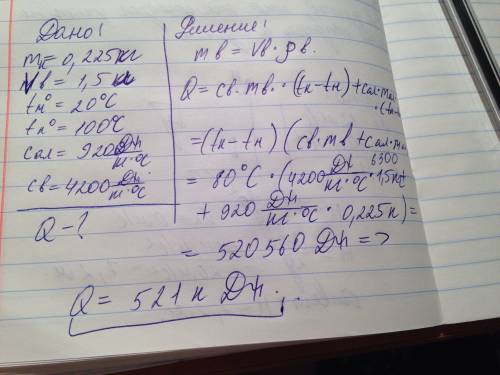 Дано!
m = 0,225 кг
Vв = 1,5 л
tн° = 20°С
tк° = 100°С
сал = 920 Дж/кг·°С
св = 4200 Дж/кг·°С
Q - ?
Решение!
mв = Vв · ρв.
Q = св · mв · (tк - tн) + сал · mал
· (tк - tн
= (tк - tн) (св · mв + сал · mал
6300
= 80°С · (4200 Дж/кг·°С · 1,5 кг +
+ 920 Дж/кг·°С · 0,225 к) =
= 520560 Дж =>
Q = 521 к Дж.